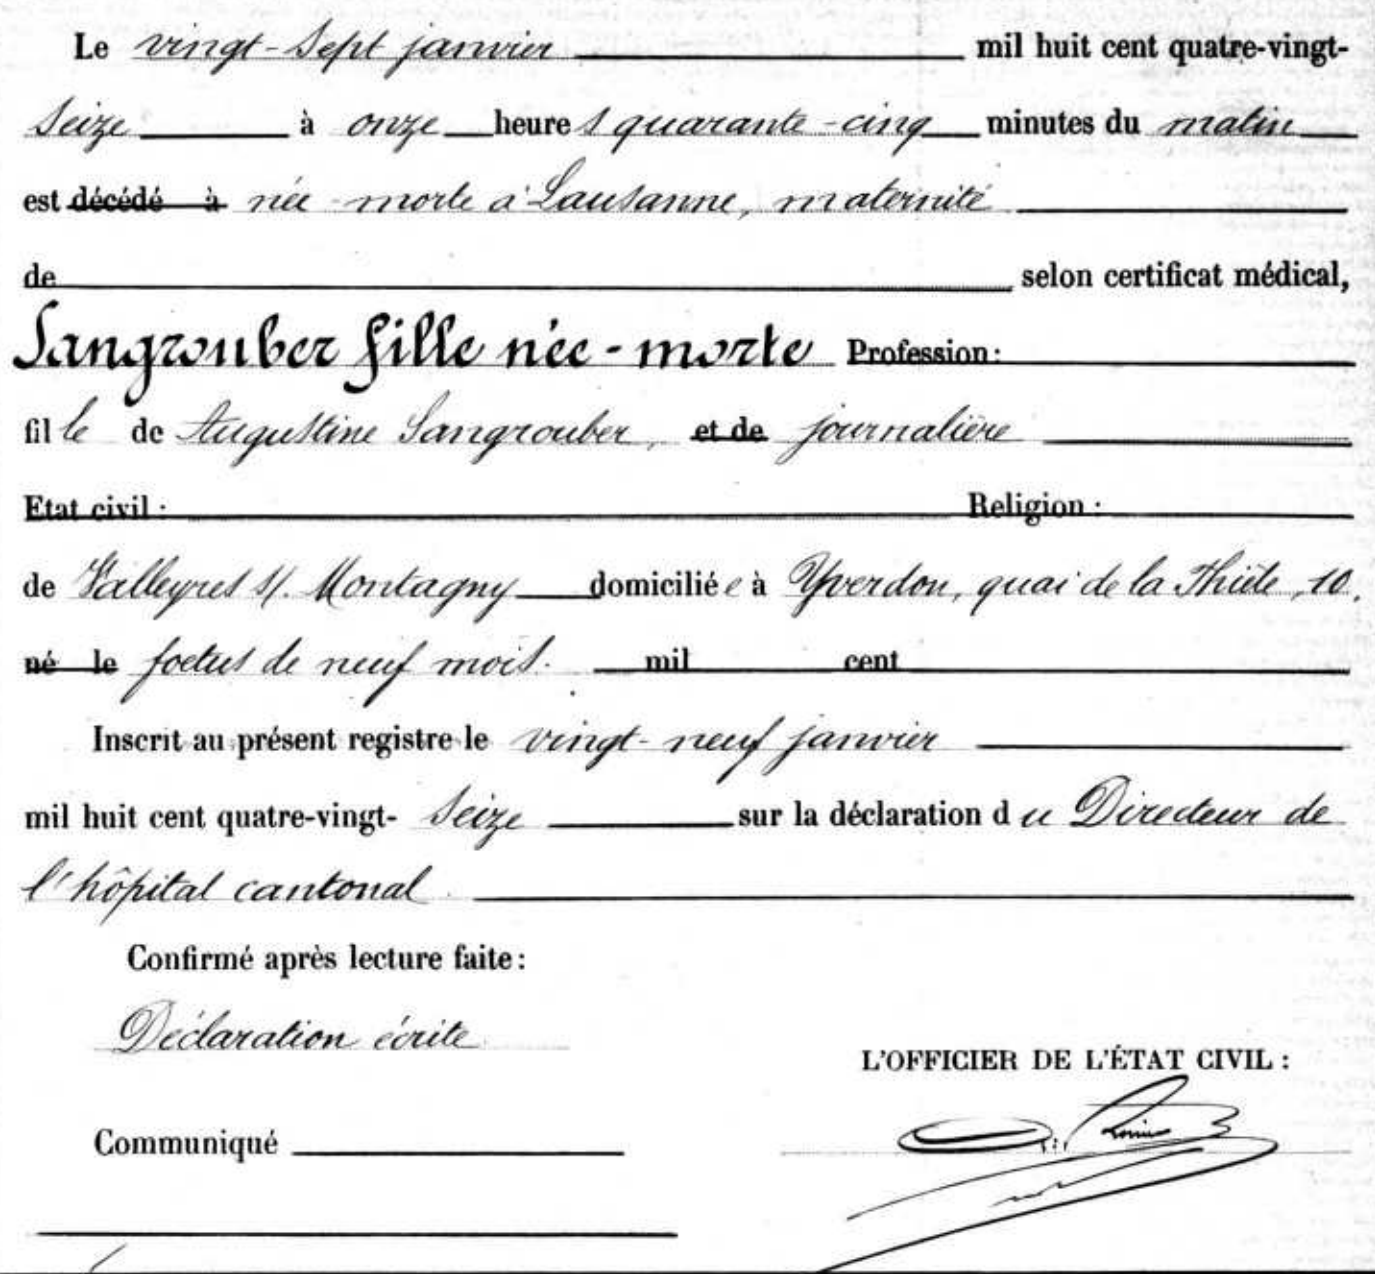 Le vingt-sept janvier mil huit cent quatre-vingt-
seize à onze heures quarante-cinq minutes du matin
est décédé à née-morte à Lausanne, maternité
de selon certificat médical,
Sangrouber fille née-morte Profession:
fille de Augustine Sangrouber, et de journalière
Etat civil: Religion:
de Valleyres s/. Montagny domiciliée à Yverdon, quai de la Thièle, 10.
né le foetus de neuf mois. mil cent
Inscrit au présent registre le vingt-neuf janvier
mil huit cent quatre-vingt-seize sur la déclaration du Directeur de
l'hôpital cantonal
Confirmé après lecture faite:
Déclaration écrite
L'OFFICIER DE L'ÉTAT CIVIL:
Communiqué